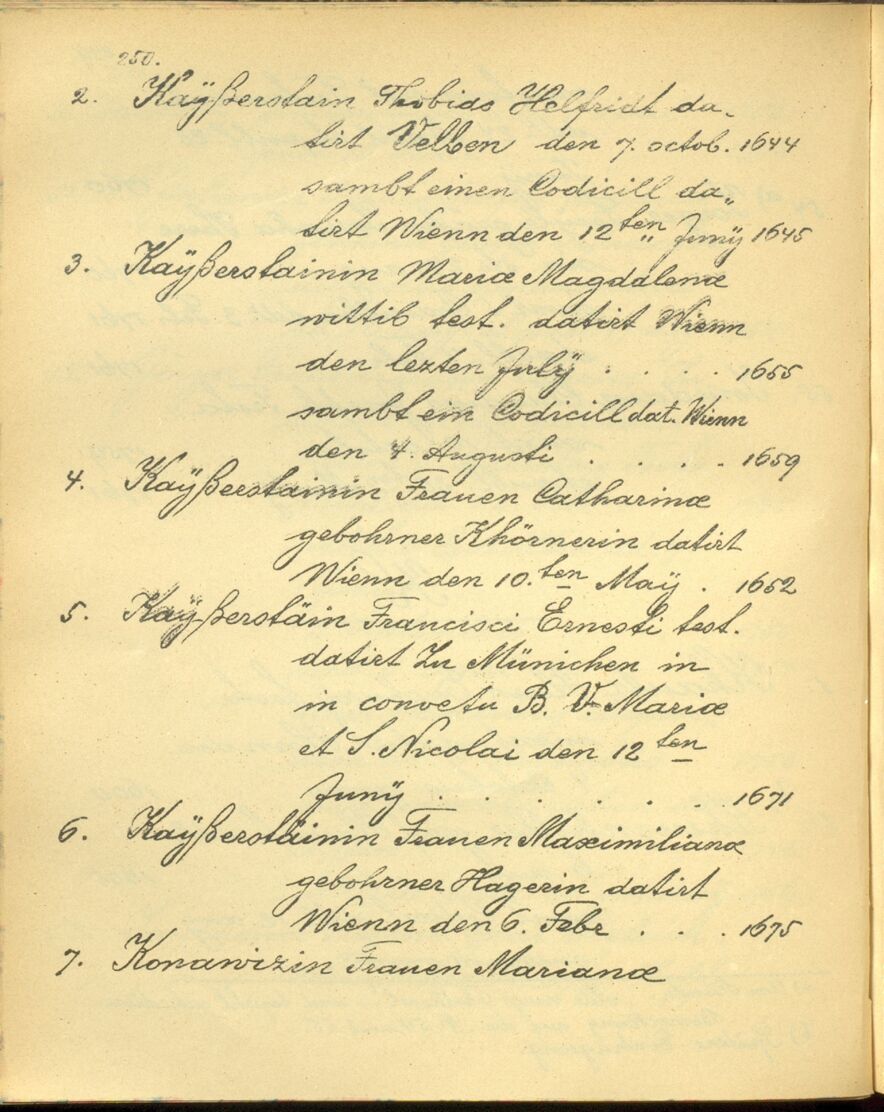 250.
2. Kaÿßerstain Thobias Helfridt da„
tirt Velben den 7. octob. 1644
sambt einen Codicill da„
tirt Wienn den 12ten„ Junÿ 1645
3. Kaÿßerstainin Mariæ Magdalenæ
wittib test. datirt Wienn
den lezten Julÿ . . . . 1655
sambt ein Codicill dat. Wienn
den 4. Augusti . . . . 1659
4. Kaÿßerstainin Frauen Catharinæ
gebohrner Khörnerin datirt
Wienn den 10.ten Maÿ . 1652
5. Kaÿßerstäin Francisci Ernesti test.
datirt Zu Münichen in
in convetu B. V. Mariæ
et S. Nicolai den 12ten
Junÿ . . . . . . . 1671
6. Kaÿßerstäinin Frauen Maximilianæ
gebohrner Hagerin datirt
Wienn den 6. Febr . . . 1675
7. Konawizin Frauen Marianæ